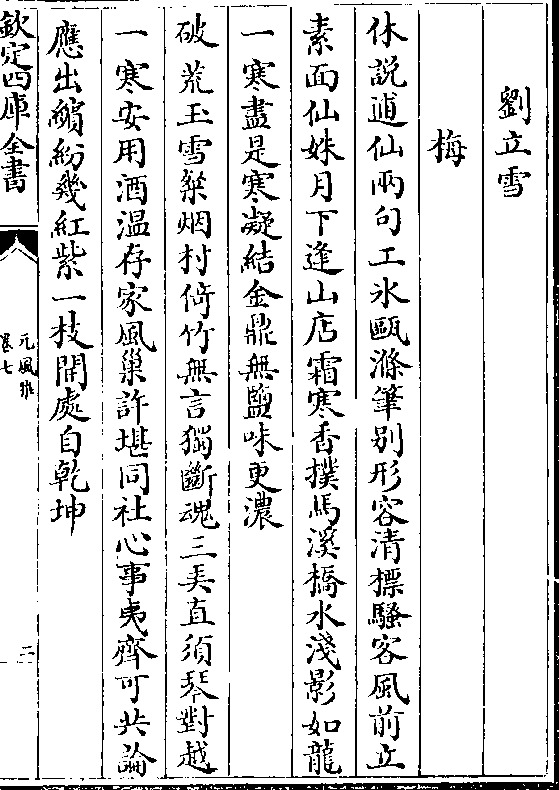 劉立雪
梅
休説逋仙兩句工氷甌滌筆别形容清標騷客風前立
素面仙姝月下逢山店霜寒香撲馬溪橋水淺影如龍
一寒盡是寒凝結金鼎無鹽味更濃
破荒玉雪粲烟村倚竹無言獨斷魂三弄直須琴對越
一寒安用酒溫存家風巢許堪同社心事夷齊可共論
應出繽紛幾紅紫一枝開處自乾坤
欽定四庫全書
元風雅
卷七
二